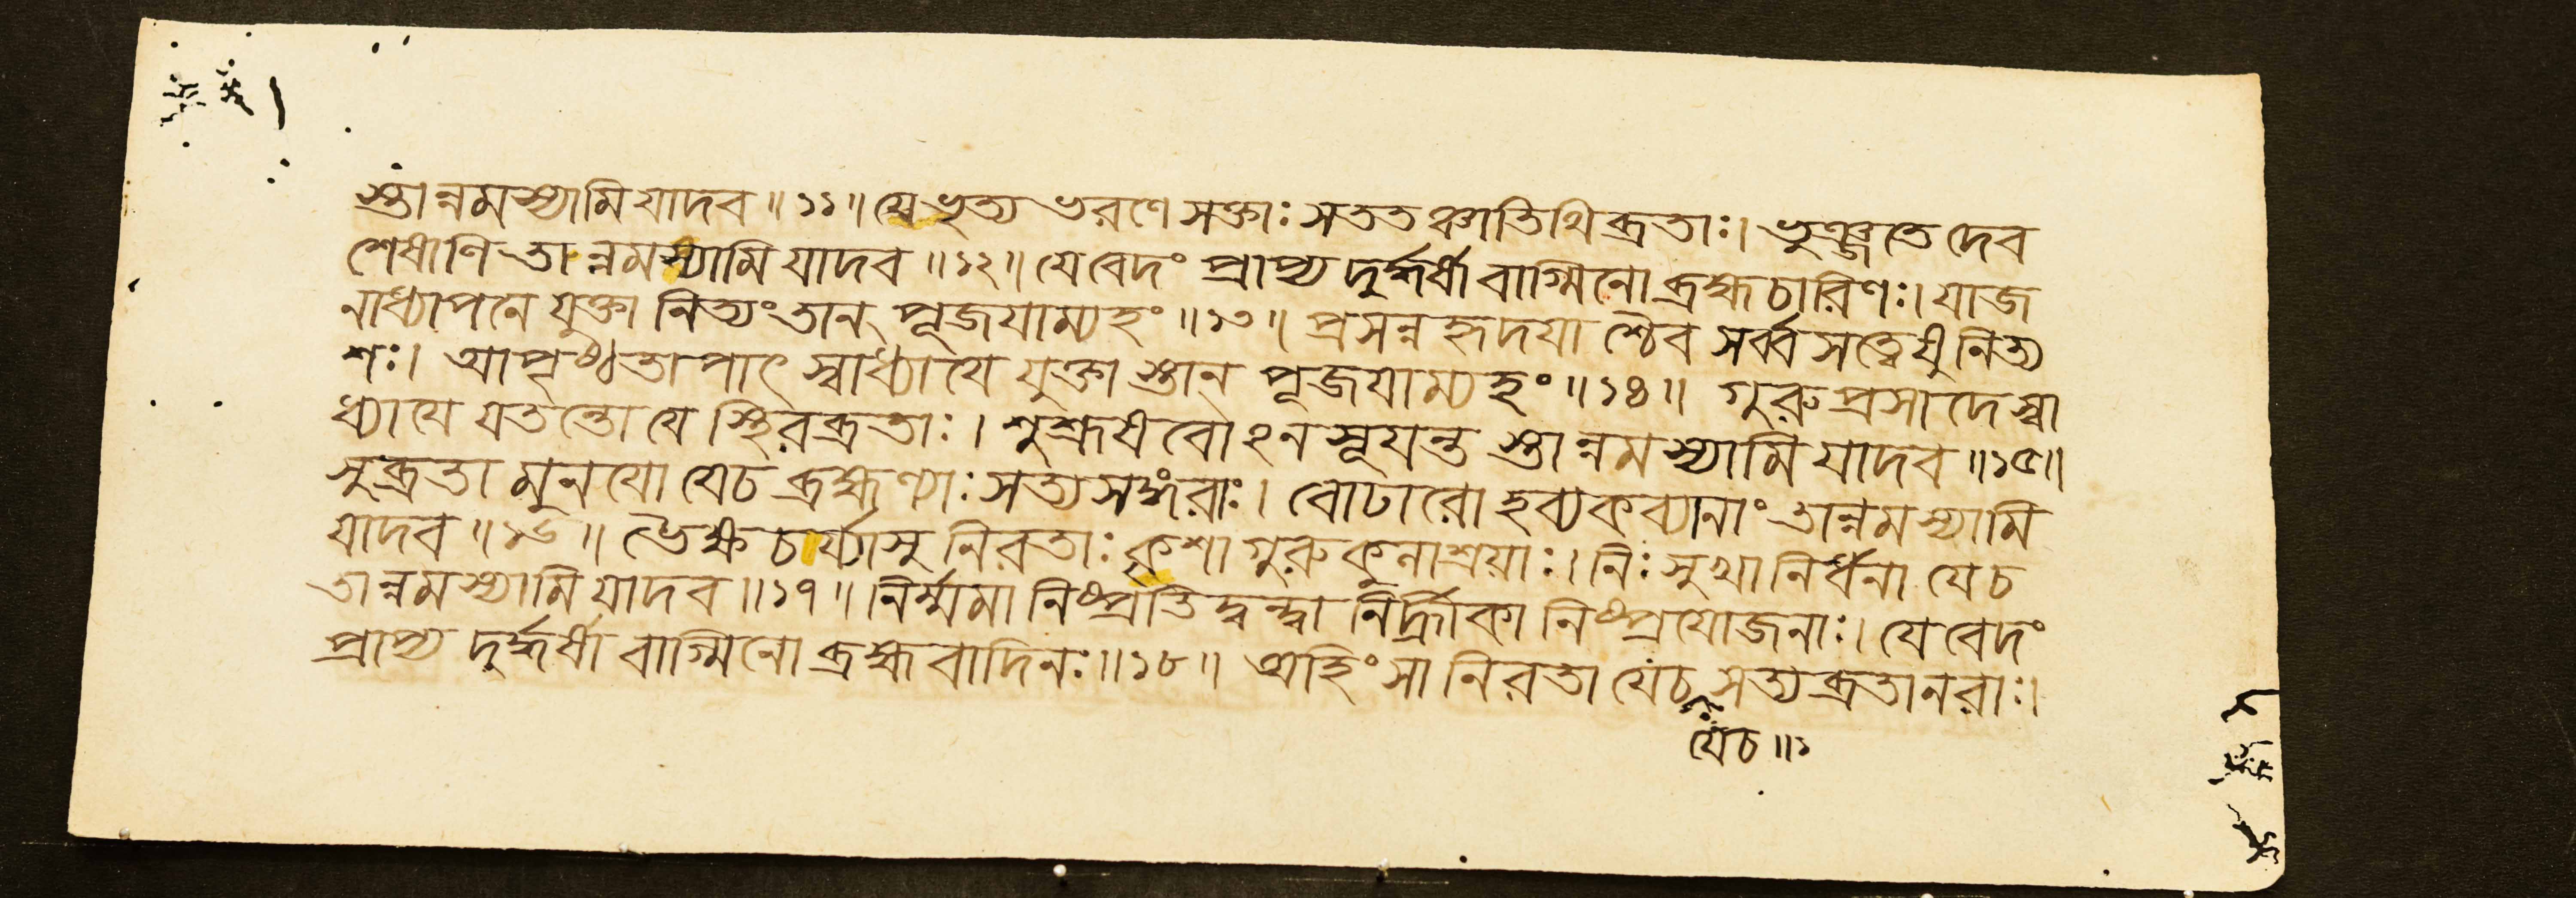 স্তান্নমস্যামি যাদব ॥১১॥ যে ভৃত্য ভরণে সক্তাঃ সততঞ্চাতিথিব্রতাঃ। ভুঞ্জতে দেব
শেষাণি তান্নমস্যামি যাদব ॥১২॥ যে বেদং প্রাপ্য দুর্দ্ধর্ষা বাগ্মিনো ব্রহ্মচারিণঃ। যাজ
নাধ্যাপনে যুক্তা নিত্যং তান্ পূজযাম্যহং ॥১৩॥ প্রসন্ন হৃদযাশ্চৈব সর্ব্বসত্ত্বেষু নিত্য
শঃ। আপৃষ্ঠতাপাৎ স্বাধ্যাযে যুক্তাস্তান্ পূজযাম্যহং ॥১৪॥ গুরুপ্রসাদে স্বা
ধ্যাযে যতন্তো যে স্থিরব্রতাঃ। শুশ্রূষবোঽনসূযন্ত স্তান্নমস্যামি যাদব ॥১৫॥
সুব্রতা মুনযো যেচ ব্রহ্মণ্যাঃ সত্যসঙ্গরাঃ। বোঢারো হব্যকব্যানাং তান্নমস্যামি
যাদব ॥১৬॥ ভৈক্ষচর্য্যাসু নিরতাঃ কৃশা গুরুকুলাশ্রয়াঃ। নিঃসুখা নির্ধনা যেচ
তান্নমস্যামি যাদব ॥১৭॥ নির্ম্মমা নিষ্প্রতিদ্বন্দ্বা নির্হ্রীকা নিষ্প্রযোজনাঃ। যে বেদং
প্রাপ্য দুর্দ্ধর্ষা বাগ্মিনো ব্রহ্মবাদিনঃ ॥১৮॥ অহিংসা নিরতা যেচ সত্যব্রতা নরাঃ।
যেচ ॥১